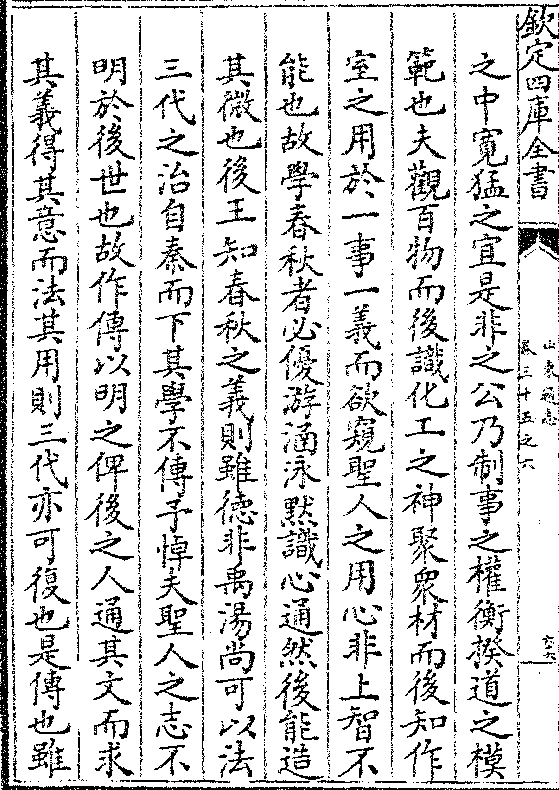 欽定四庫全書
山東通志
卷三十五之六
之中寬猛之宜是非之公乃制事之權衡揆道之模
範也夫觀百物而後識化工之神聚衆材而後知作
室之用於一事一義而欲窺聖人之用心非上智不
能也故學春秋者必優游涵泳黙識心通然後能造
其微也後王知春秋之義則雖德非禹湯尚可以法
三代之治自秦而下其學不傳予悼夫聖人之志不
明於後世也故作傳以明之俾後之人通其文而求
其義得其意而法其用則三代亦可復也是傳也雖